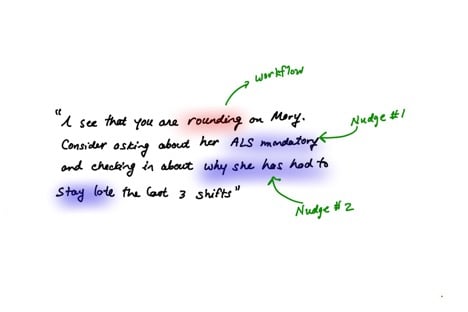 workflow
"I see that you are rounding on Mary.
Nudge #1
Consider asking about her ALS mandatory
and checking in about why she has had to
stay late the last 3 shifts"
Nudge #2